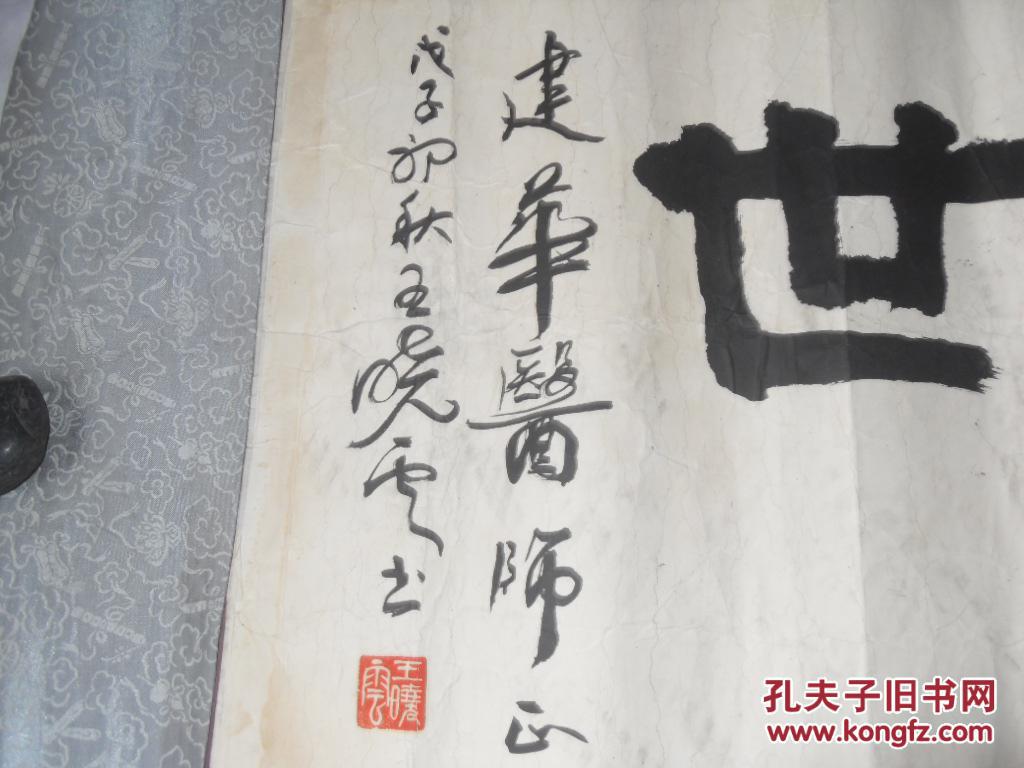 世
建華醫師正
戊子初秋王晓云书
王曉雲
孔夫子旧书网
www.kongfz.com